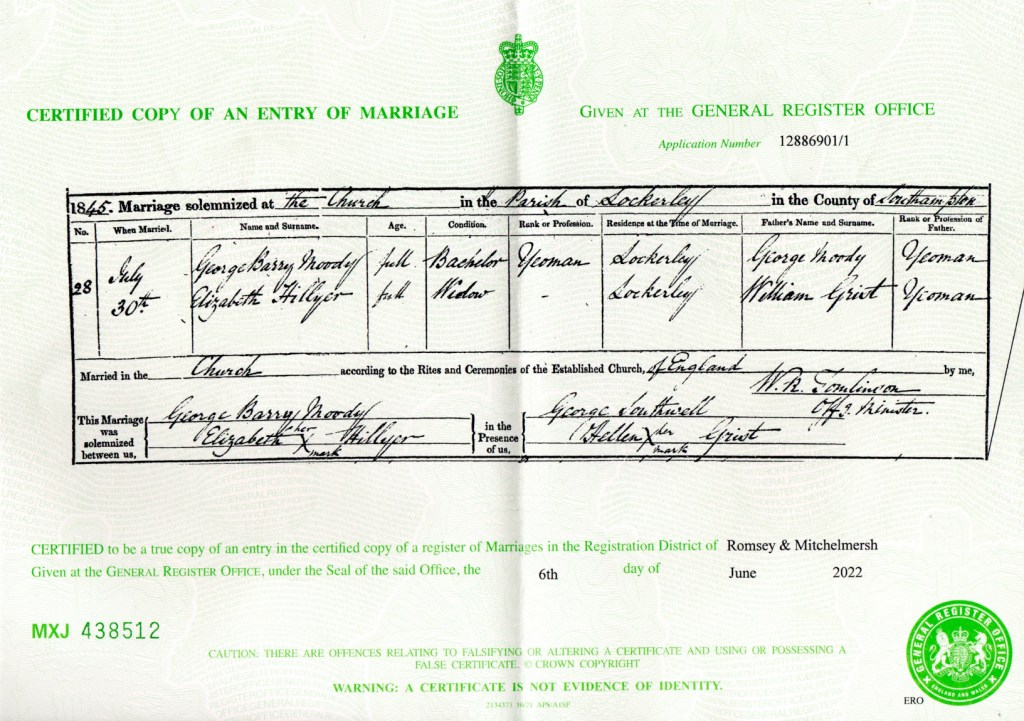 CERTIFIED COPY OF AN ENTRY OF MARRIAGE
GIVEN AT THE GENERAL REGISTER OFFICE
Application Number 12886901/1
1845. Marriage solemnized at the Church in the Parish of Lockerley in the County of Southampton
No. When Married. Name and Surname. Age. Condition. Rank or Profession. Residence at the Time of Marriage. Father's Name and Surname. Rank or Profession of Father.
28 July 30th
George Barry Moody full Bachelor Yeoman Lockerley George Moody Yeoman
Elizabeth Hillyer full Widow - Lockerley William Grist Yeoman
Married in the Church according to the Rites and Ceremonies of the Established Church, of England by me,
W. R. Tomlinson
Offg. Minister.
This Marriage was solemnized between us, George Barry Moody
Elizabeth X Hillyer
her mark
in the Presence of us, George Southwell
Hellen X Grist
her mark
CERTIFIED to be a true copy of an entry in the certified copy of a register of Marriages in the Registration District of Romsey & Mitchelmersh
Given at the GENERAL REGISTER OFFICE, under the Seal of the said Office, the 6th day of June 2022
MXJ 438512
CAUTION: THERE ARE OFFENCES RELATING TO FALSIFYING OR ALTERING A CERTIFICATE AND USING OR POSSESSING A
FALSE CERTIFICATE. © CROWN COPYRIGHT
WARNING: A CERTIFICATE IS NOT EVIDENCE OF IDENTITY.
GENERAL REGISTER OFFICE
ENGLAND AND WALES
ERO